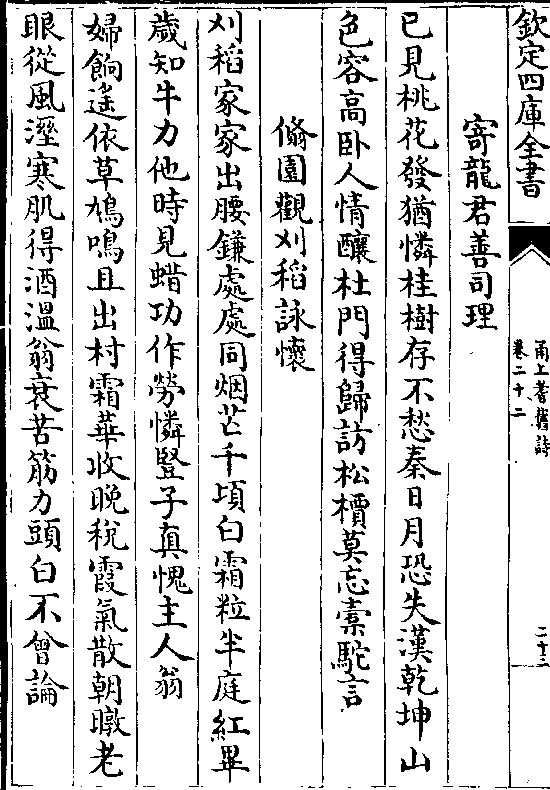 欽定四庫全書
甬上耆舊詩
卷二十二
二十三
寄龍君善司理
已見桃花發猶憐桂樹存不愁秦日月恐失漢乾坤山
色容高卧人情釀杜門得歸訪松檟莫忘橐駝言
翛園觀刈稻詠懷
刈稻家家出腰鎌處處同烟芒千頃白霜粒半庭紅畢
歲知牛力他時見蜡功作勞憐豎子真愧主人翁
婦餉遙依草鳩鳴且出村霜華收晚稅霞氣散朝暾老
眼從風溼寒肌得酒溫翁衰苦筋力頭白不曾論